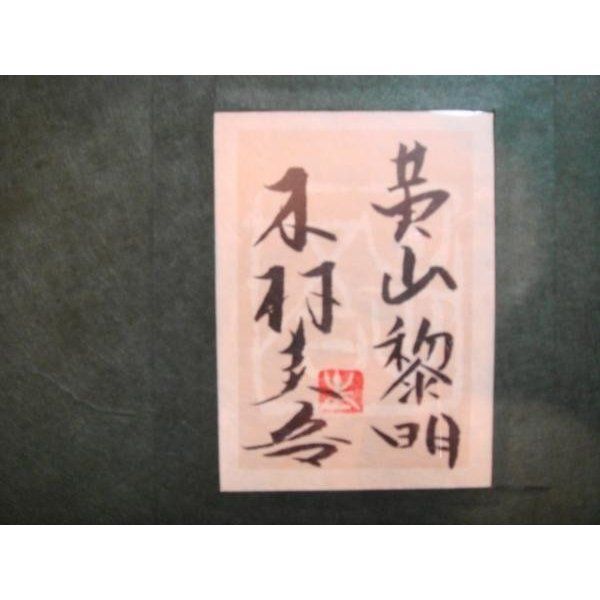 黄山黎明
木村圭吾